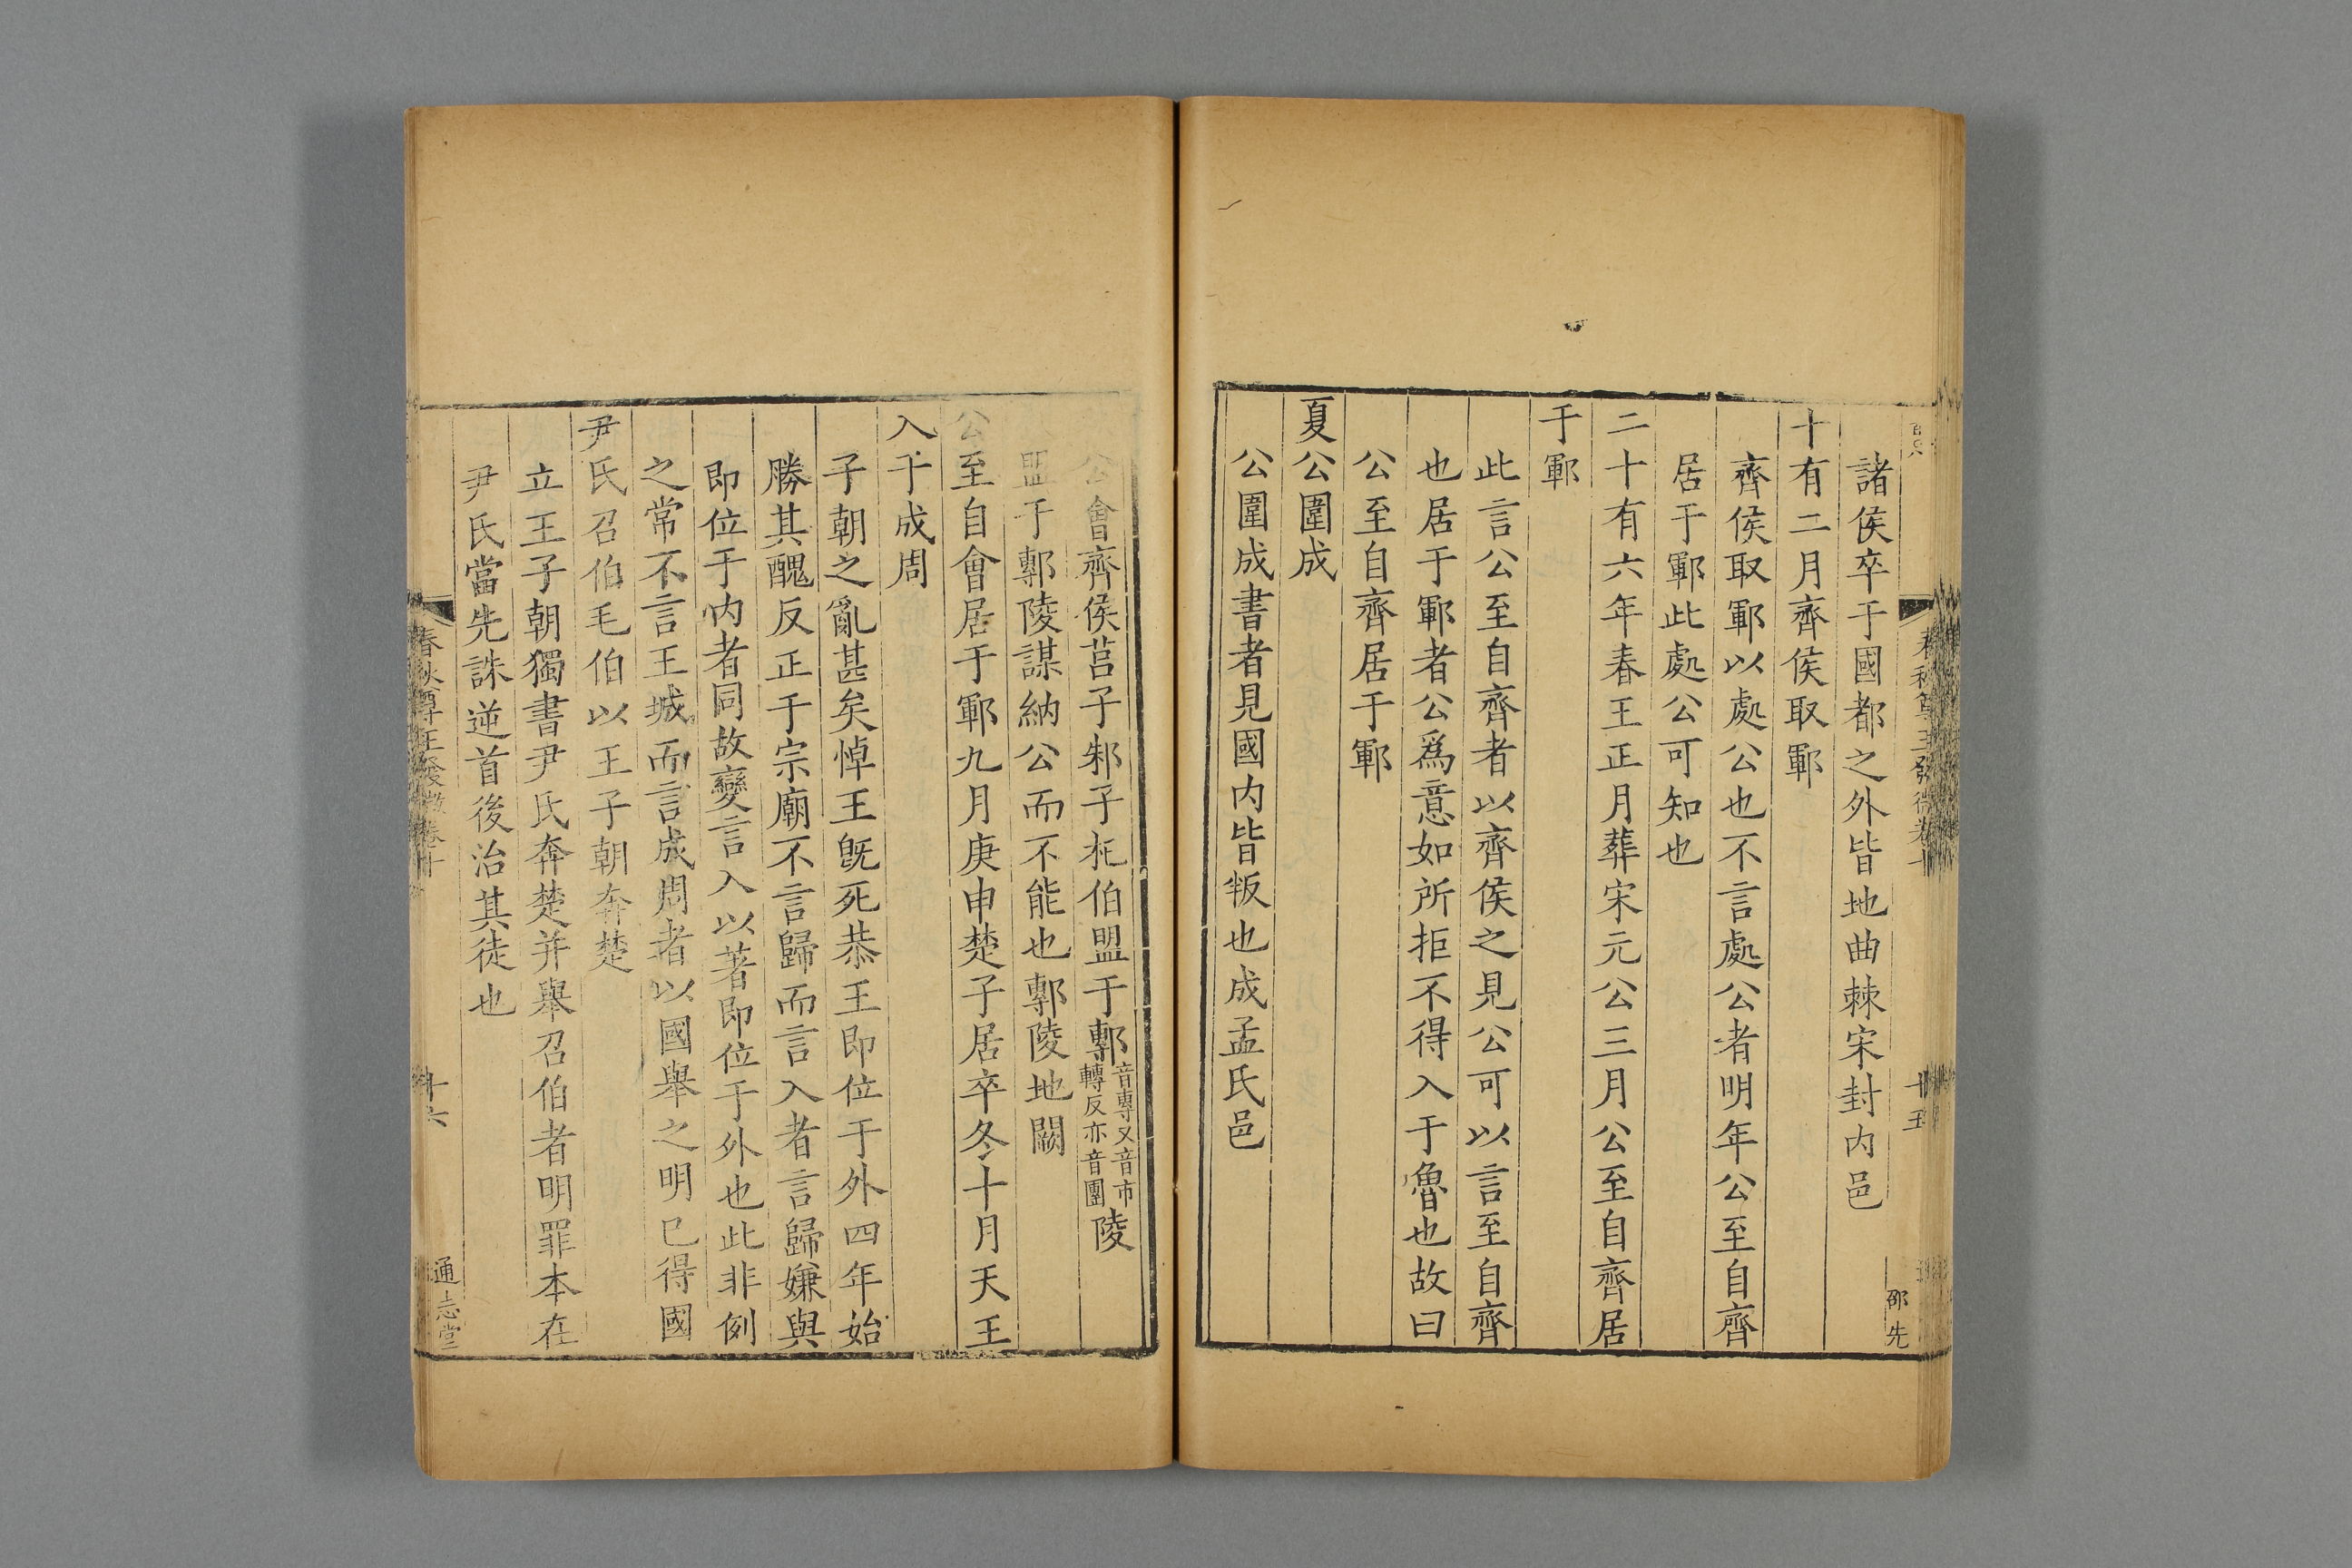 諸侯卒于國都之外皆地曲棘宋封内邑
十有二月齊侯取鄆
齊侯取鄆以處公也不言處公者明年公至自齊
居于鄆此處公可知也
二十有六年春王正月葬宋元公三月公至自齊居
于鄆
此言公至自齊者以齊侯之見公可以言至自齊
也居于鄆者公爲意如所拒不得入于魯也故曰
公至自齊居于鄆
夏公圍成
公圍成書者見國内皆叛也成孟氏邑
春秋尊王發微卷十
十五
邵先
公會齊侯莒子邾子杞伯盟于鄟音專又音市轉反亦音團陵
盟于鄟陵謀納公而不能也鄟陵地闕
公至自會居于鄆九月庚申楚子居卒冬十月天王
入于成周
子朝之亂甚矣悼王旣死恭王即位于外四年始
勝其醜反正于宗廟不言歸而言入者言歸嫌與
即位于内者同故變言入以著即位于外也此非例
之常不言王城而言成周者以國舉之明已得國
尹氏召伯毛伯以王子朝奔楚
立王子朝獨書尹氏奔楚并舉召伯者明罪本在
尹氏當先誅逆首後治其徒也
春秋尊王發微卷十
十六
通志堂